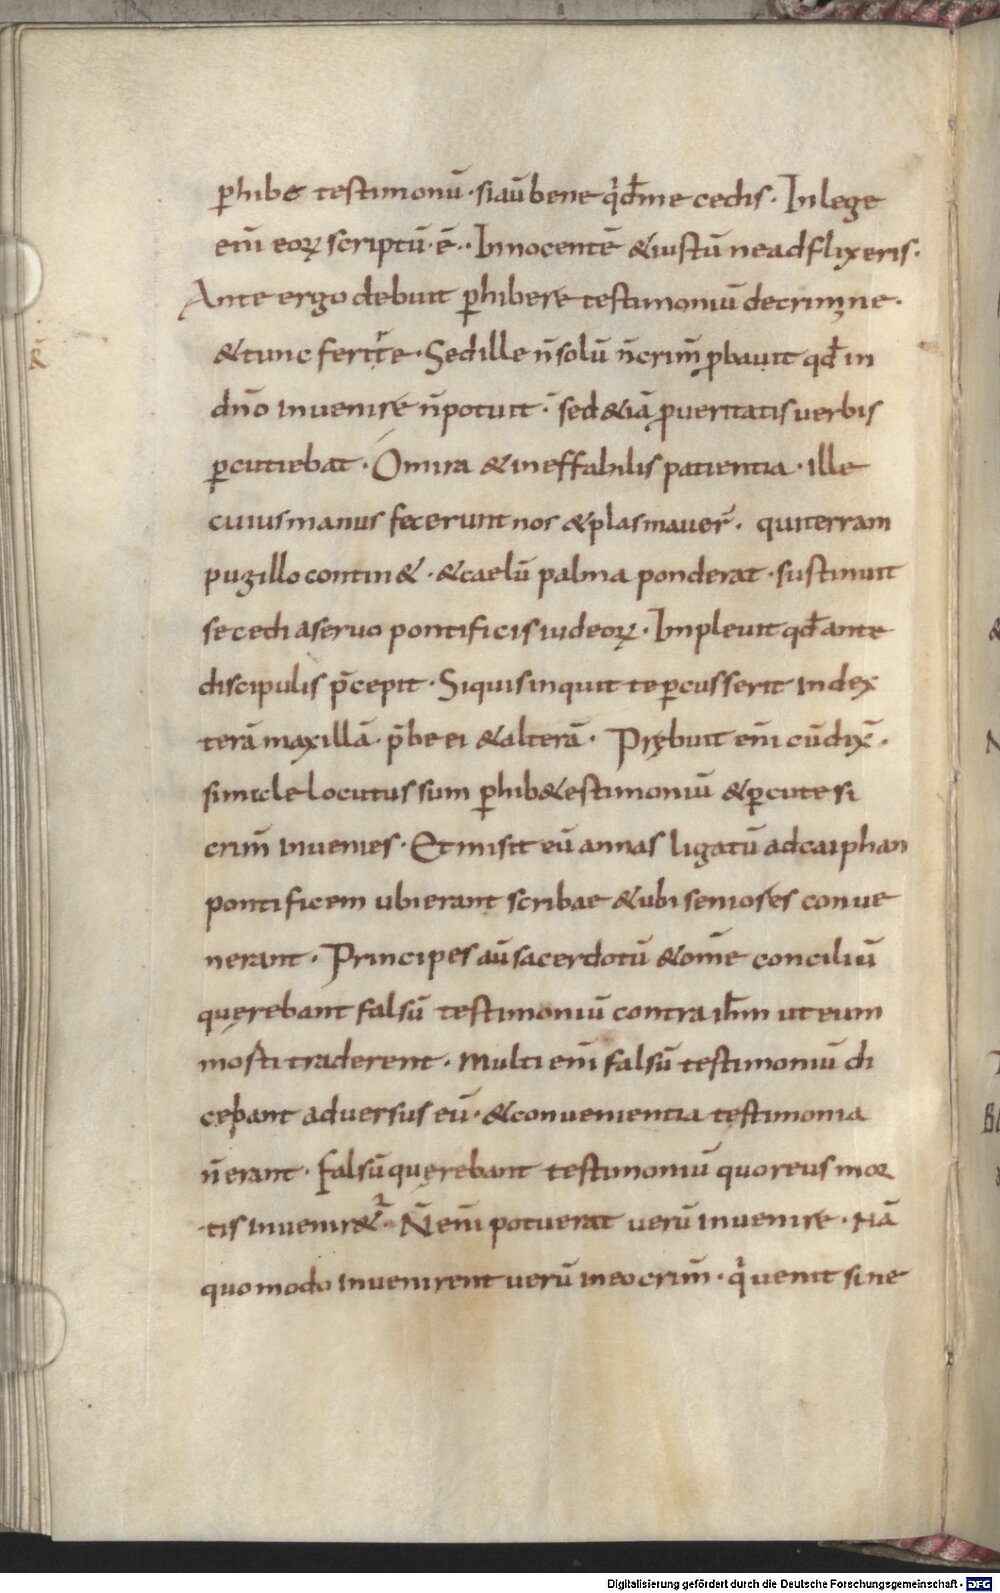 ꝑhibe testimoniū · si aū bene q̇d me cedis · In lege
eni̅ eoꝝ scriptū · ē · Innocentē & iustū ne adflixeris ·
Ante ergo debuit ꝑhibere testimoniū de crimine ·
R̄
& tunc ferire · Sed ille n̄ solū n̄ crim̄ ꝓbauit qđ in
dn̄o inuenire n̄ potuit · sed &iā ꝓ ueritatis uerbis
ꝑcutiebat · O mira & ineffabilis patientia · ille
cuius manus fecerunt nos & plasmauer̄ · qui terram
pugillo contin& · & caelū palma ponderat · sustinuit
se cedi a seruo pontificis iudeoꝝ · Impleuit qđ ante
discipulis p̄cepit · Siquis inquit te ꝑcusserit in dex
terā maxillā · p̄be ei & alterā · Prębuit eni̅ cū dix̄ ·
si male locutus sum ꝑhib& testimoniū & ꝑcute si
crim̄ inuenies · Et misit eū annas ligatū ad caiphan
pontificem ubi erant scribae & ubi senioses conue
nerant · Principes aū sacerdotū & om̄e conciliū
quęrebant falsū testimoniū contra ihm̄ ut eum
mosti traderent · Multi eni̅ falsū testimoniū di
cebant aduersus eū · & conuenientia testimonia
n̄ erant · Falsū quęrebant testimoniū quo reus mor
tis inuenir&r · N̄ eni̅ potuerat uerū inuenire · Nā
quomodo inuenirent uerū in eo crim̄ · q̇ uenit sine
Digitalisierung gefördert durch die Deutsche Forschungsgemeinschaft - DFG